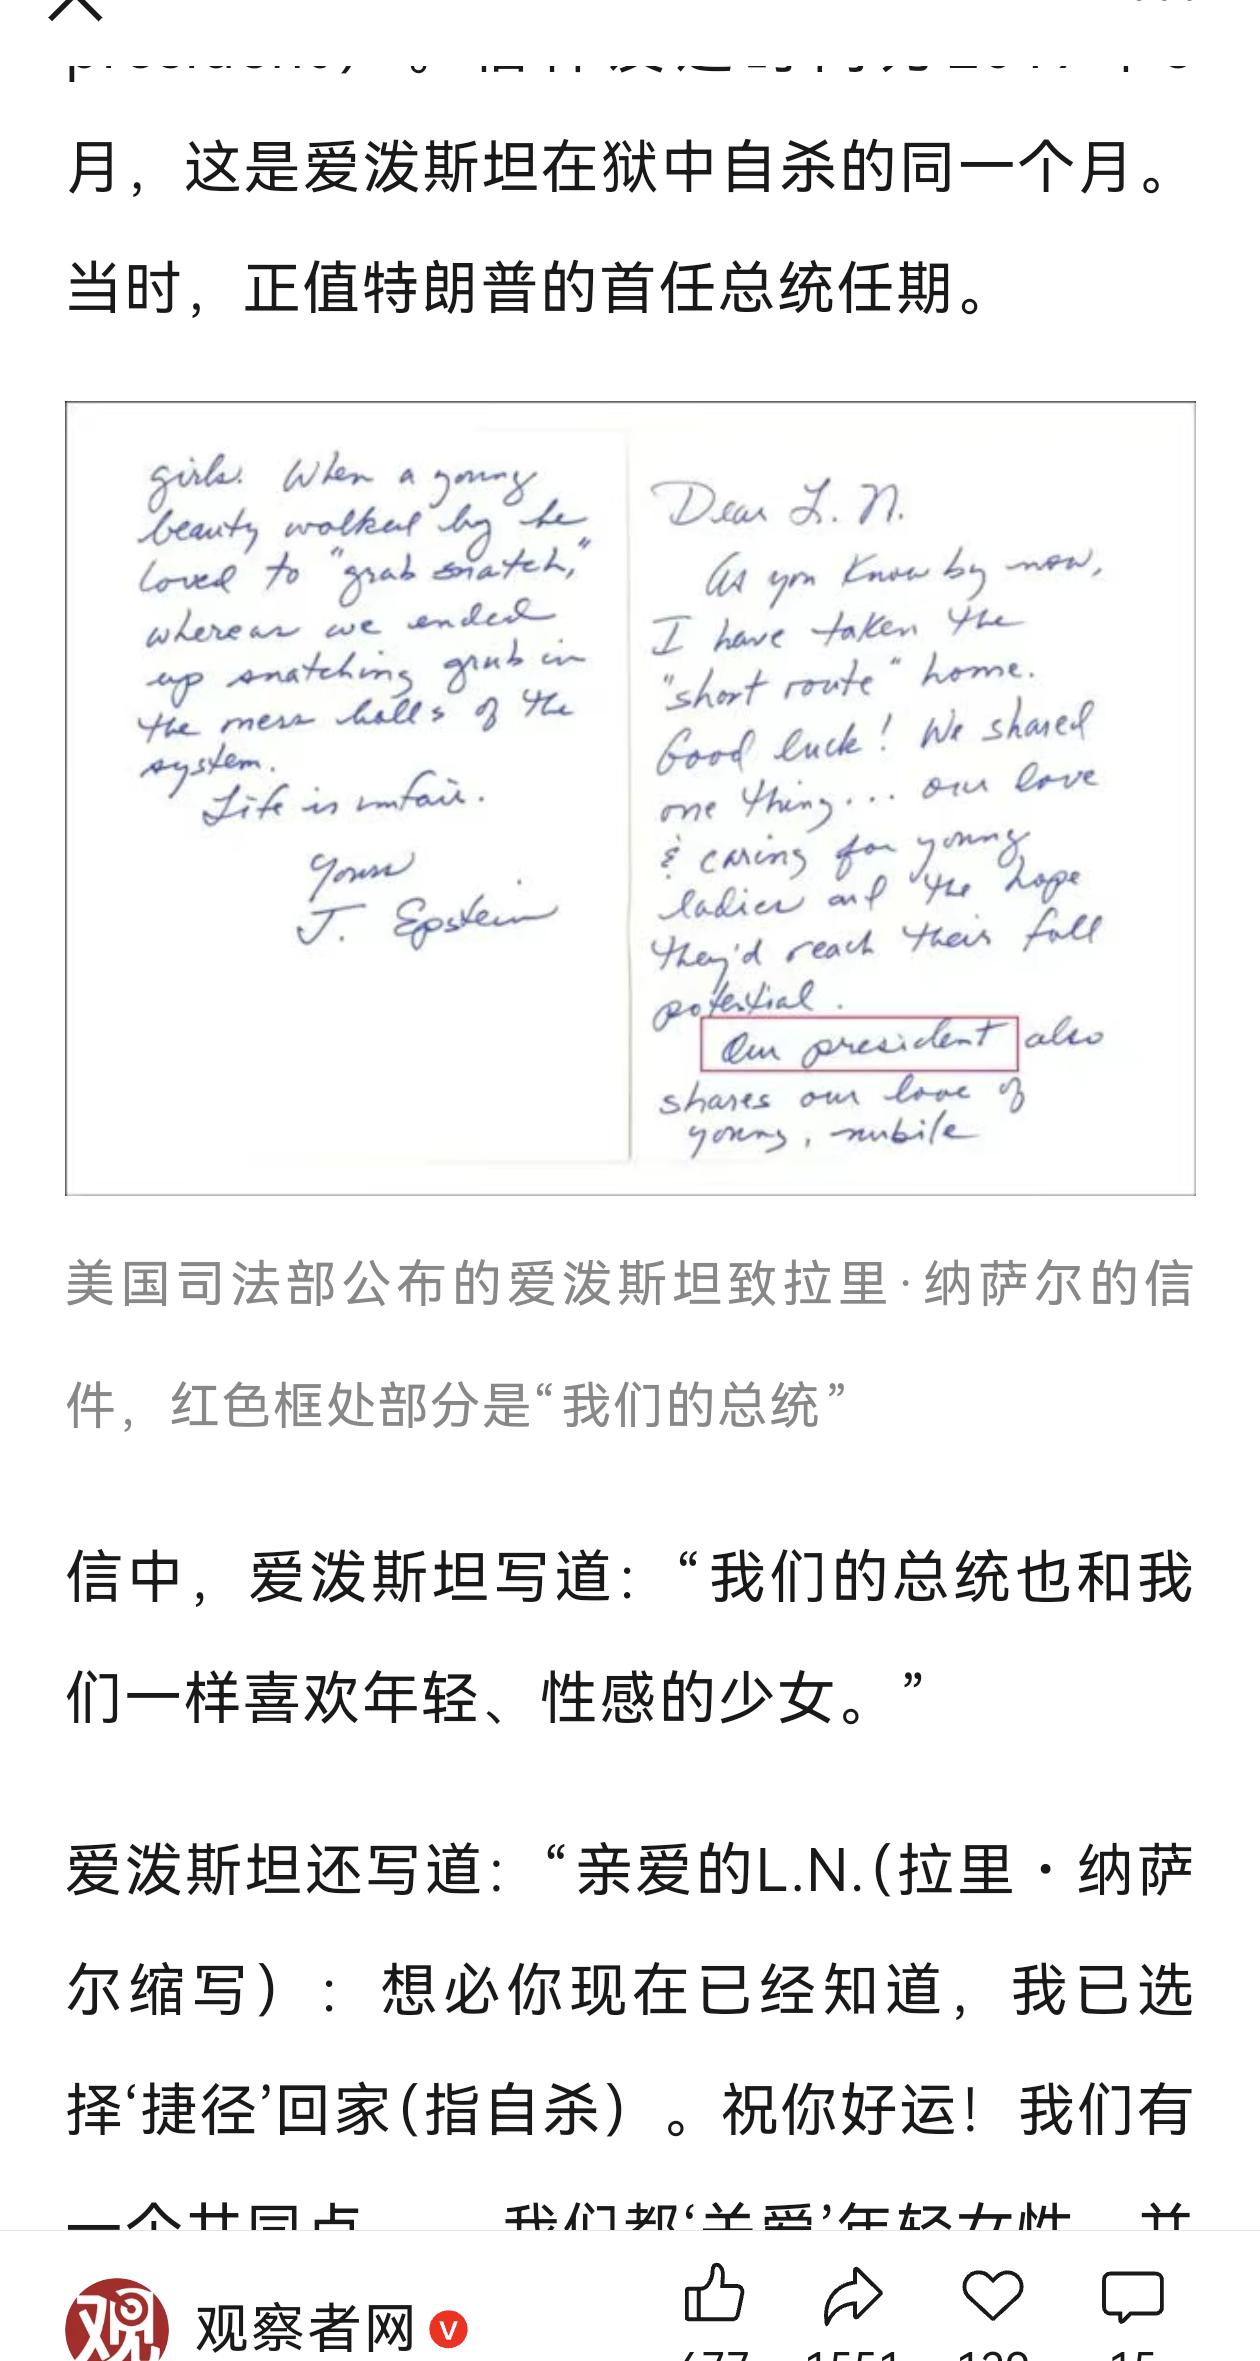 月，这是爱泼斯坦在狱中自杀的同一个月。
当时，正值特朗普的首任总统任期。
girls. When a young
beauty walked by he
loved to "grab snatch,"
whereas we ended
up snatching grub in
the mess halls of the
system.
Life is unfair.
Yours
J. Epstein
Dear L. N.
As you know by now,
I have taken the
"short route" home.
Good luck! We shared
one thing... our love
& caring for young
ladies and the hope
they'd reach their full
potential.
Our president also
shares our love of
young, nubile
美国司法部公布的爱泼斯坦致拉里·纳萨尔的信
件，红色框处部分是“我们的总统”
信中，爱泼斯坦写道：“我们的总统也和我
们一样喜欢年轻、性感的少女。”
爱泼斯坦还写道：“亲爱的L.N.(拉里·纳萨
尔缩写）：想必你现在已经知道，我已选
择‘捷径’回家(指自杀）。祝你好运！我们有
一个共同点——我们都‘关爱’年轻女性，并
观
观察者网 V